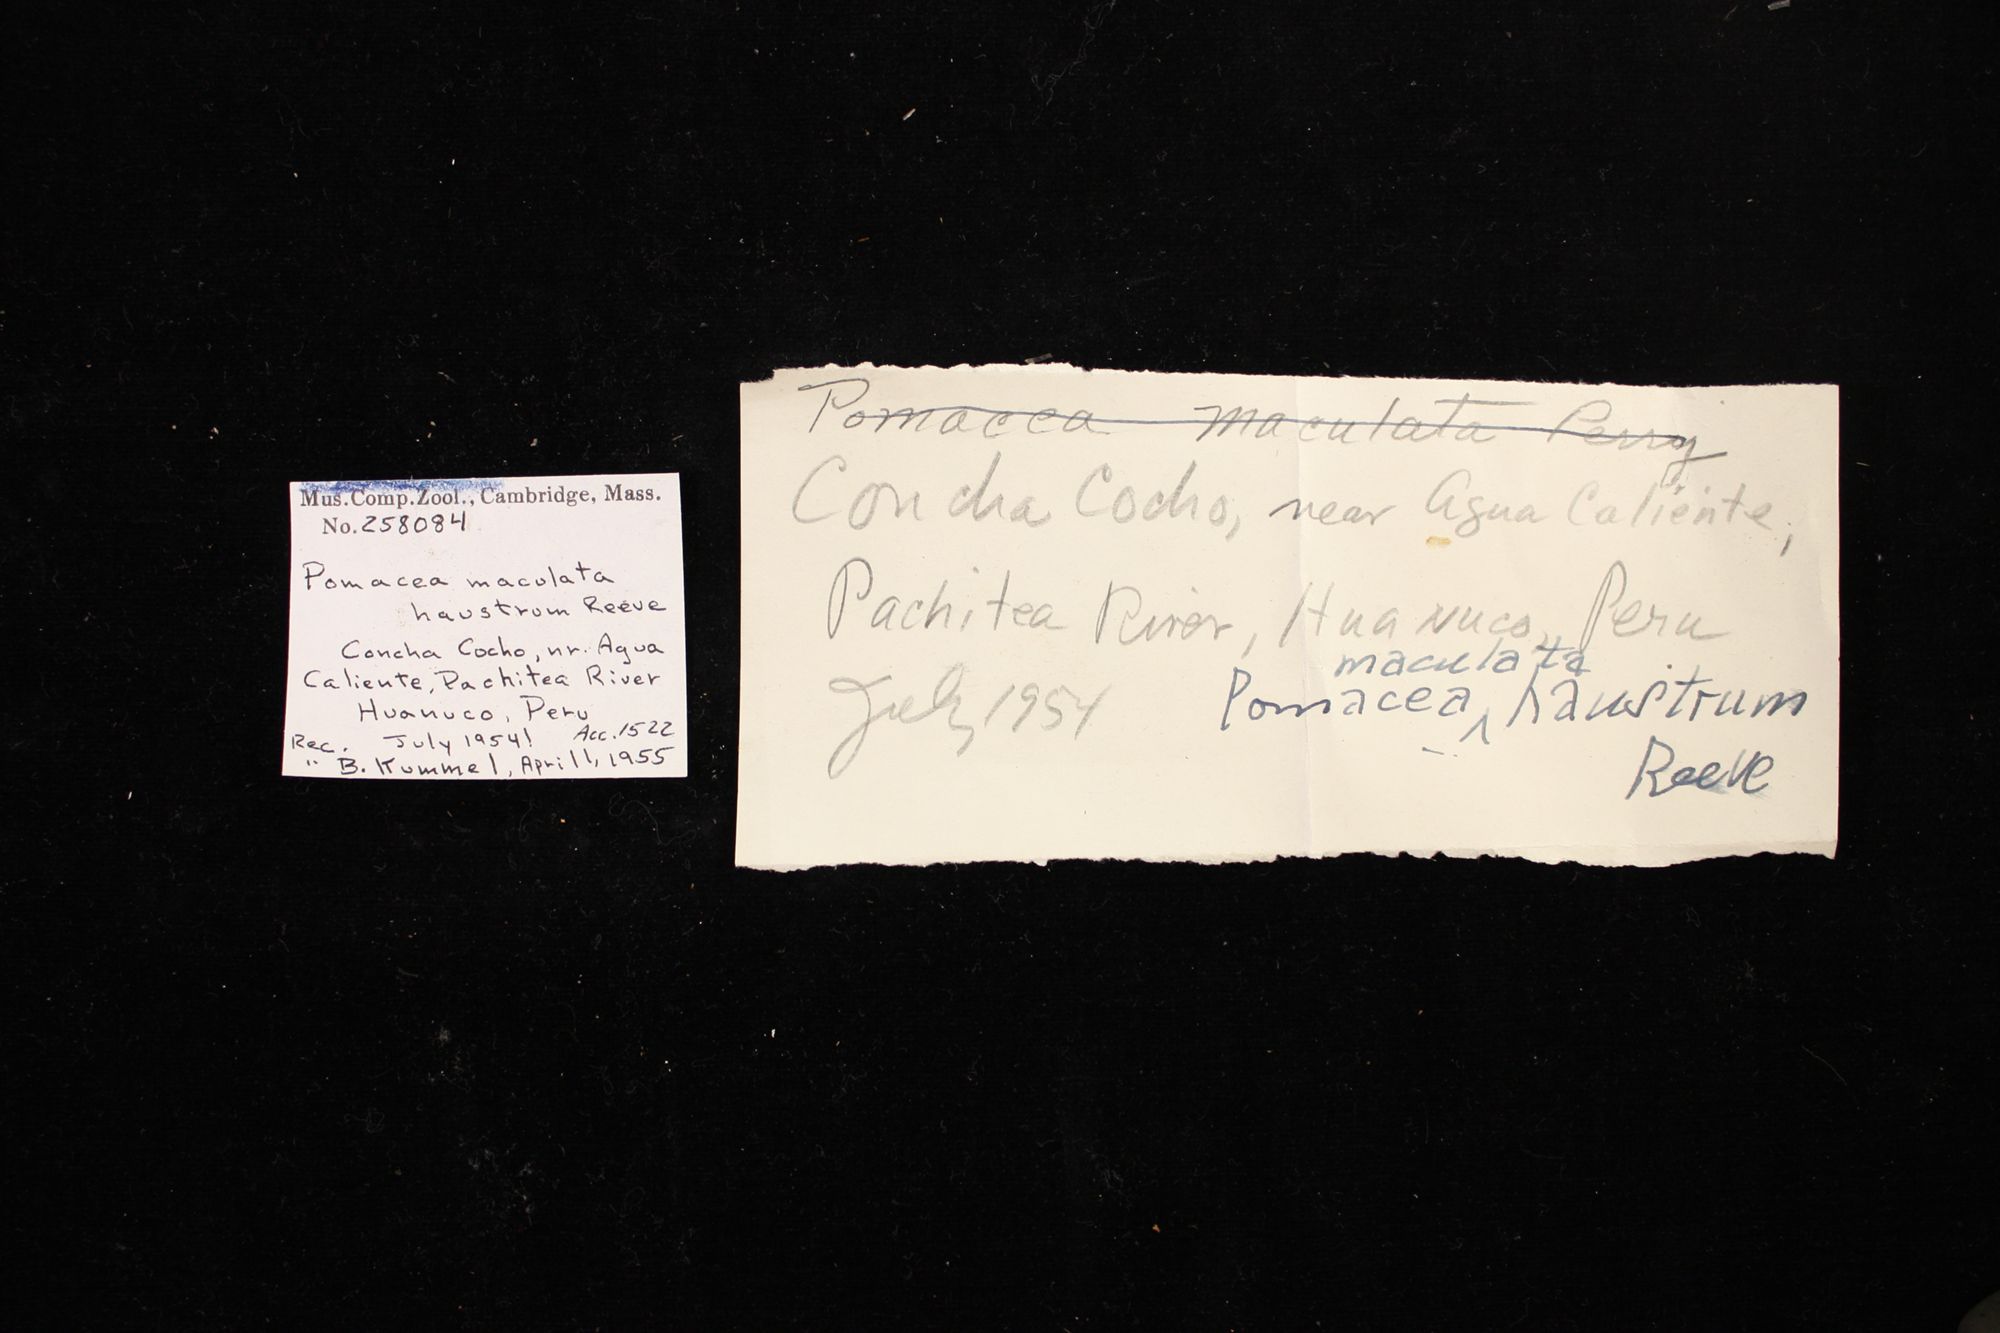 Mus.Comp.Zool., Cambridge, Mass.
No. 258084
Pomacea maculata
haustrum Reeve
Concha Cocho, nr. Agua
Caliente, Pachitea River
Huanuco, Peru
July 1954! Acc. 1522
Rec. " B. Kummel, April 1, 1955
Pomacea maculata Perry
Concha Cocho, near Agua Caliente,
Pachitea River, Huanuco, Peru
July, 1954
maculata
Pomacea ^ haustrum
Reeve